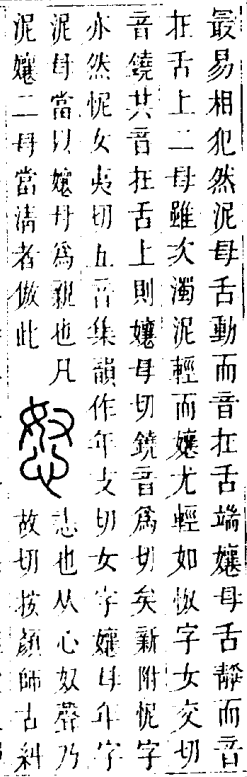 最易相犯然泥母舌動而音在舌端孃母舌靜而音
在舌上二母雖次濁泥輕而孃尤輕如怓字女交切
音鐃其音在舌上則孃母切鐃音爲切矣新附怩字
亦然怩女夷切五音集韻作年支切女字孃母年字
泥母當以孃母爲親也凡
泥孃二母當淸者倣此
怒
恚也从心奴聲乃
故切按顏師古糾